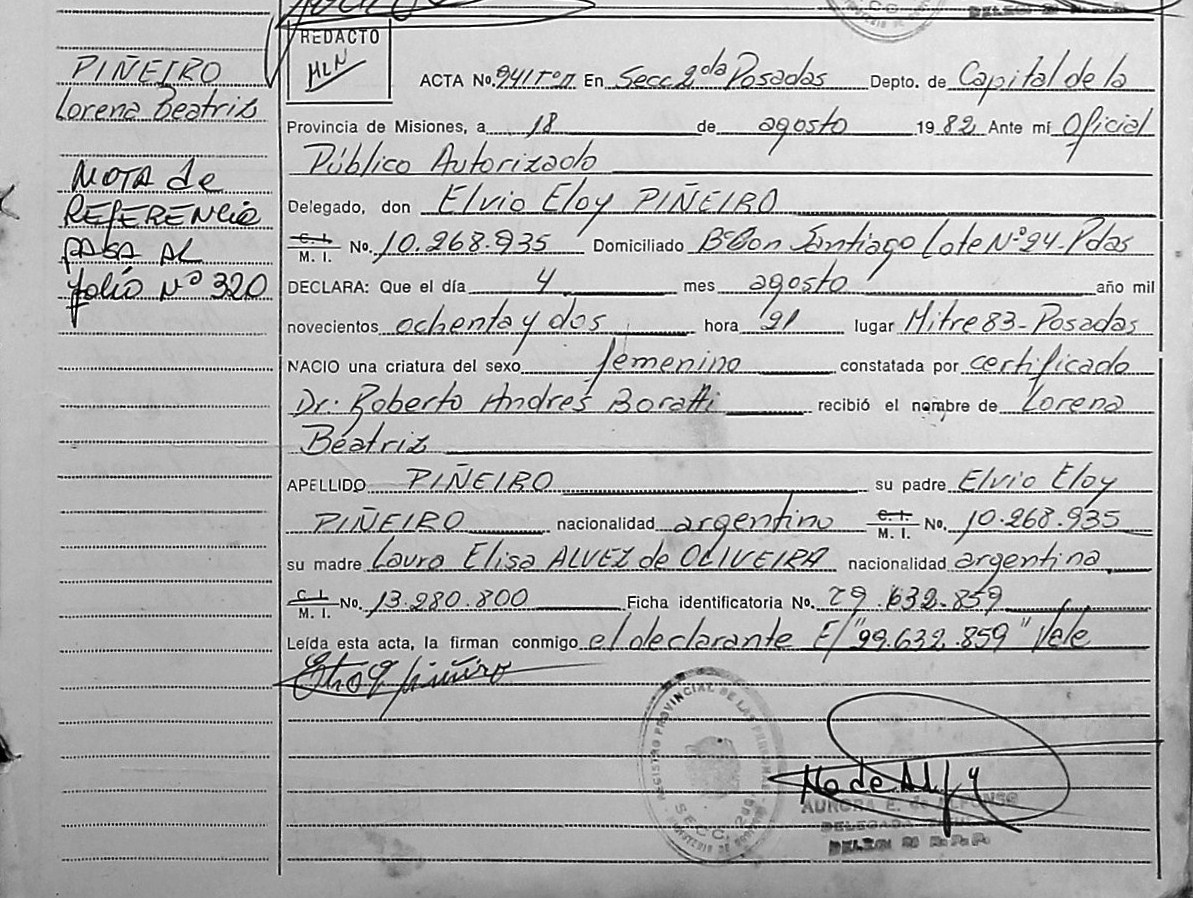 PIÑEIRO
Lorena Beatriz
NOTA de
REFERENCIA
PASA AL
folio Nº 320
REDACTO
ACTA No. 941 Tº II En Secc 2da Posadas Depto. de Capital de la
Provincia de Misiones, a 18 de agosto 1982 Ante mí Oficial
Público Autorizado
Delegado, don Elvio Eloy PIÑEIRO
C. I. M. I. No. 10.268.935 Domiciliado Bº Don Santiago Lote Nº 24-Pdas
DECLARA: Que el día 4 mes agosto año mil
novecientos ochenta y dos hora 21 lugar Mitre 83-Posadas
NACIO una criatura del sexo femenino constatada por certificado
Dr. Roberto Andrés Boratti recibió el nombre de Lorena
Beatriz
APELLIDO PIÑEIRO su padre Elvio Eloy
PIÑEIRO nacionalidad argentino C. I. M. I. No. 10.268.935
su madre Laura Elisa ALVEZ de OLIVEIRA nacionalidad argentina
C. I. M. I. No. 13.280.800 Ficha identificatoria No. 29.632.859
Leída esta acta, la firman conmigo el declarante E/"29.632.859" Vale
REGISTRO PROVINCIAL DE LAS PERSONAS
SECC. 2da.
AURORA E. de ALFONSO
DELEGADA
DELEG. R.P.P.